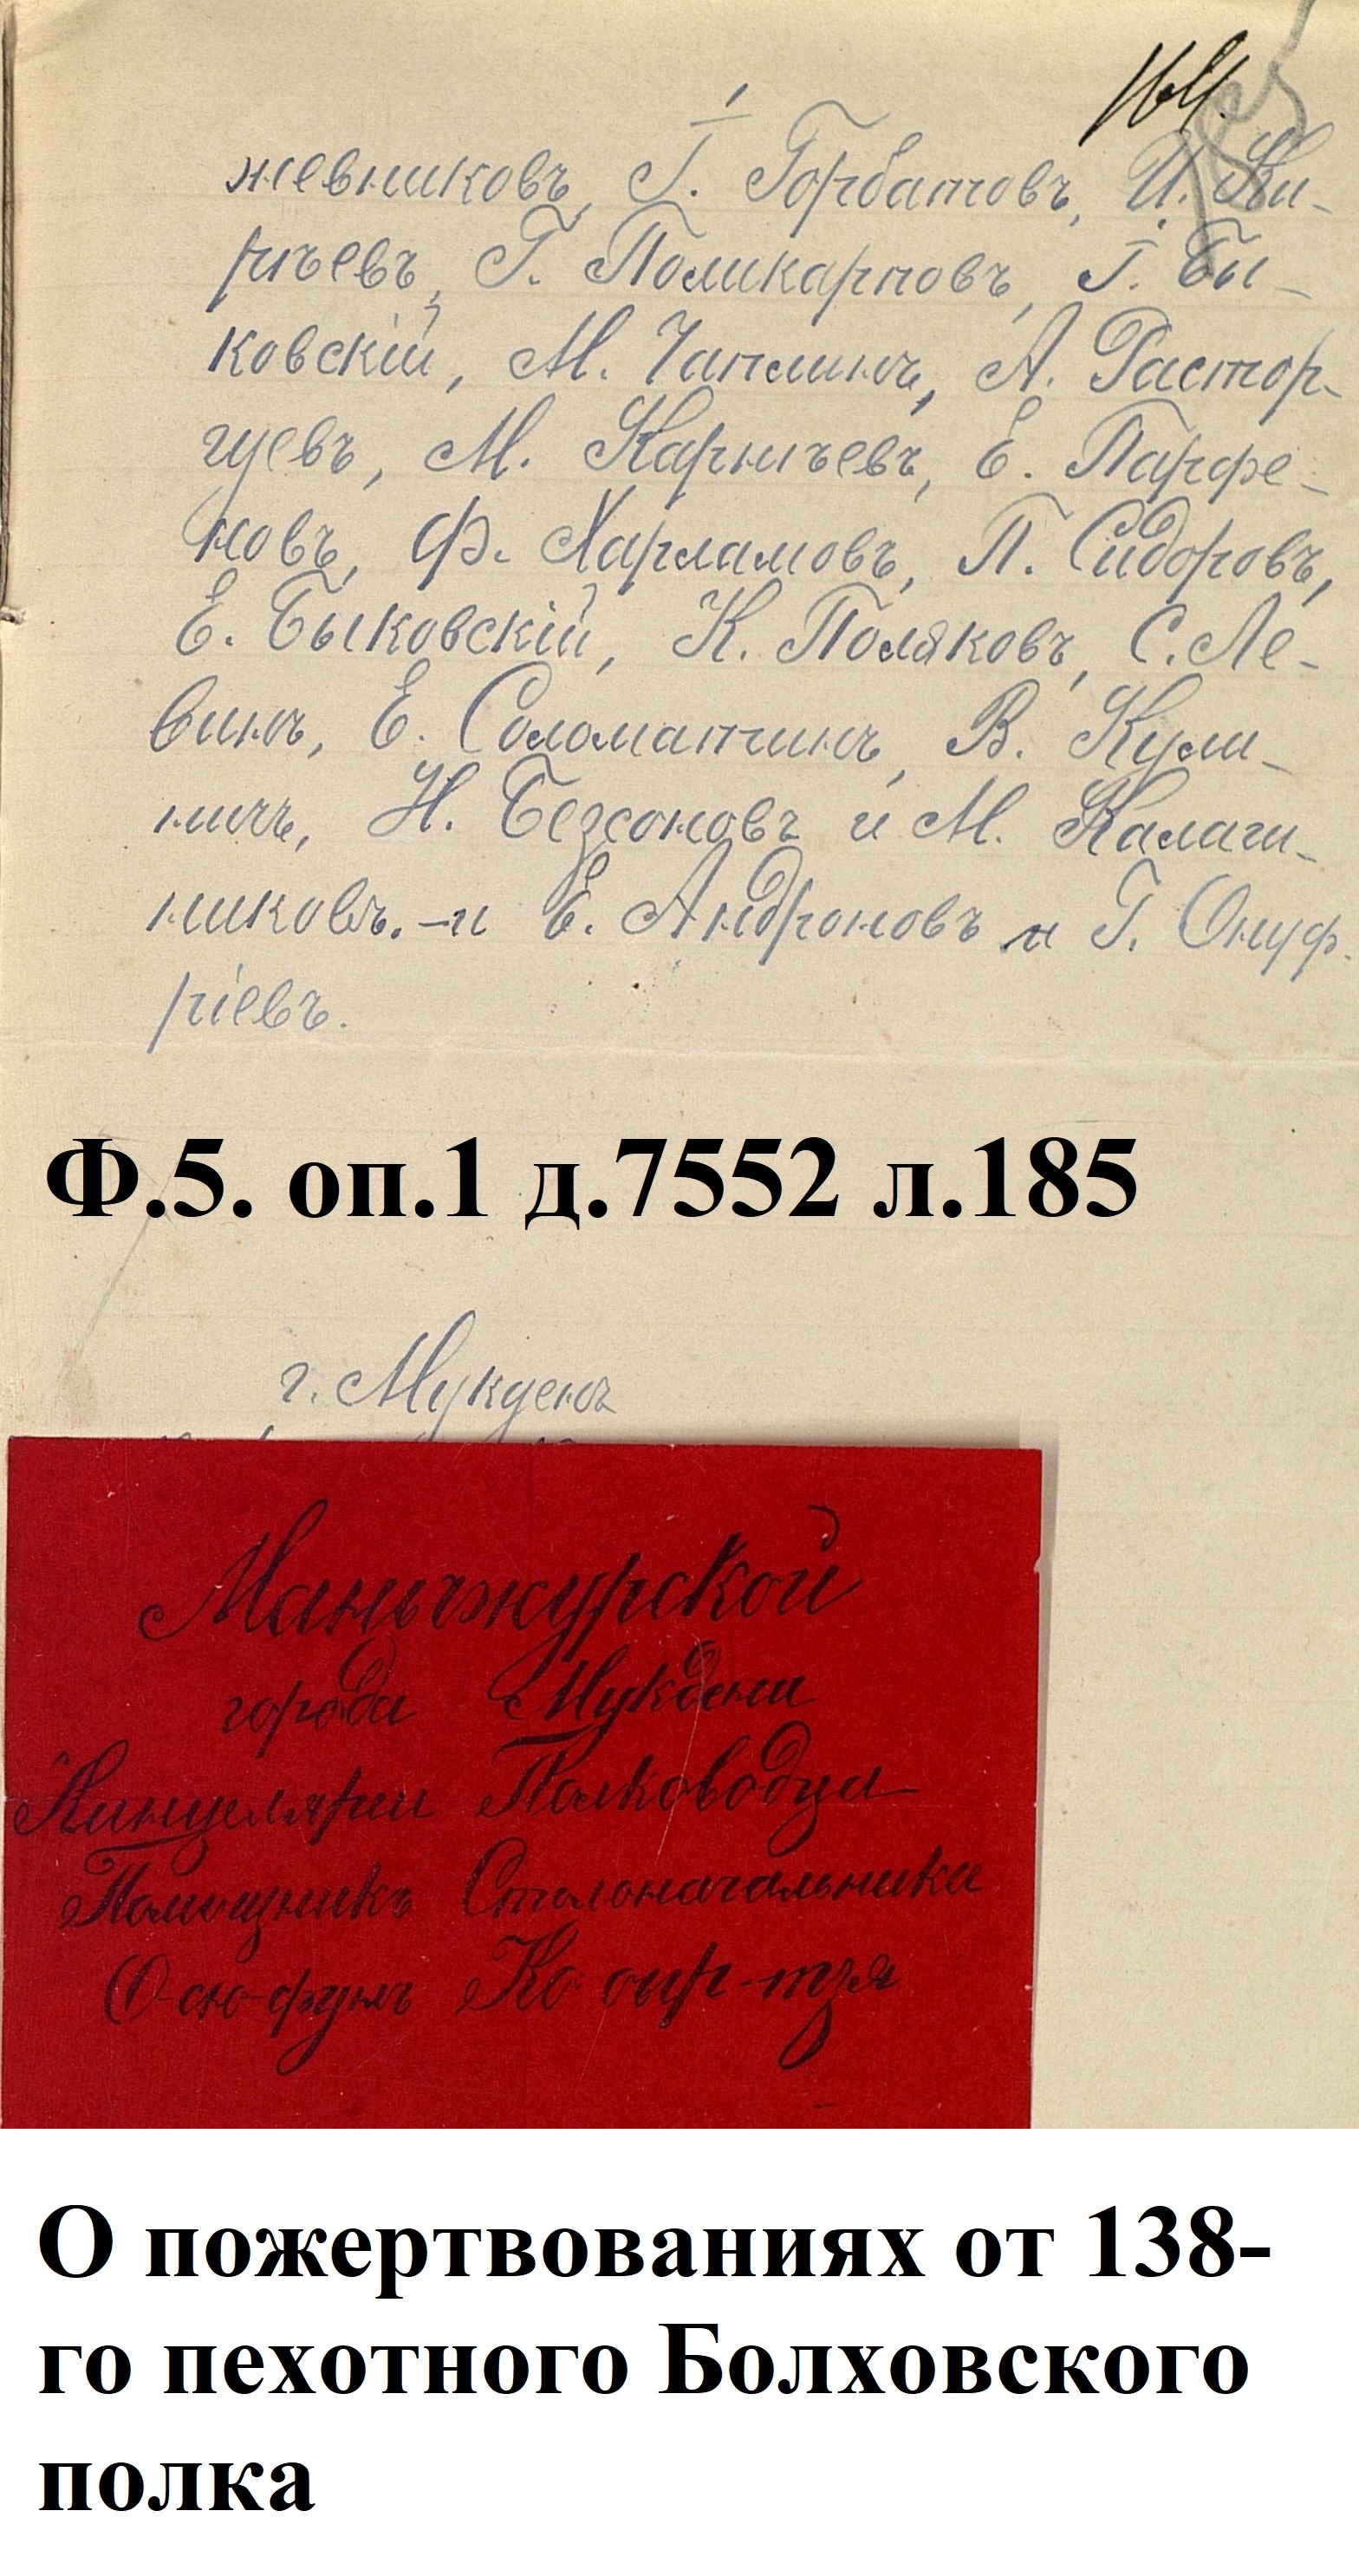 жевниковъ, І. Горбатовъ, И. Ки-
ричевъ, Г. Поликарповъ, І. Бы-
ковскій, М. Чаплинъ, А. Растор-
гуевъ, М. Карничевъ, Е. Парфе-
новъ, Ф. Харламовъ, П. Сидоровъ,
Е. Быковскій, К. Поляковъ, С. Ле-
винъ, Е. Соломатинъ, В. Кули-
ничъ, Н. Безсоновъ и М. Калаш-
никовъ. - и Е. Андроновъ и Г. Онуф-
ріевъ.
Ф.5. оп.1 д.7552 л.185
г. Мукденъ
Маньчжурской
города Мукдена
Канцеляріи Полководца
Помощникъ Столоначальника
О-сю-фунъ
О пожертвованиях от 138-
го пехотного Болховского
полка